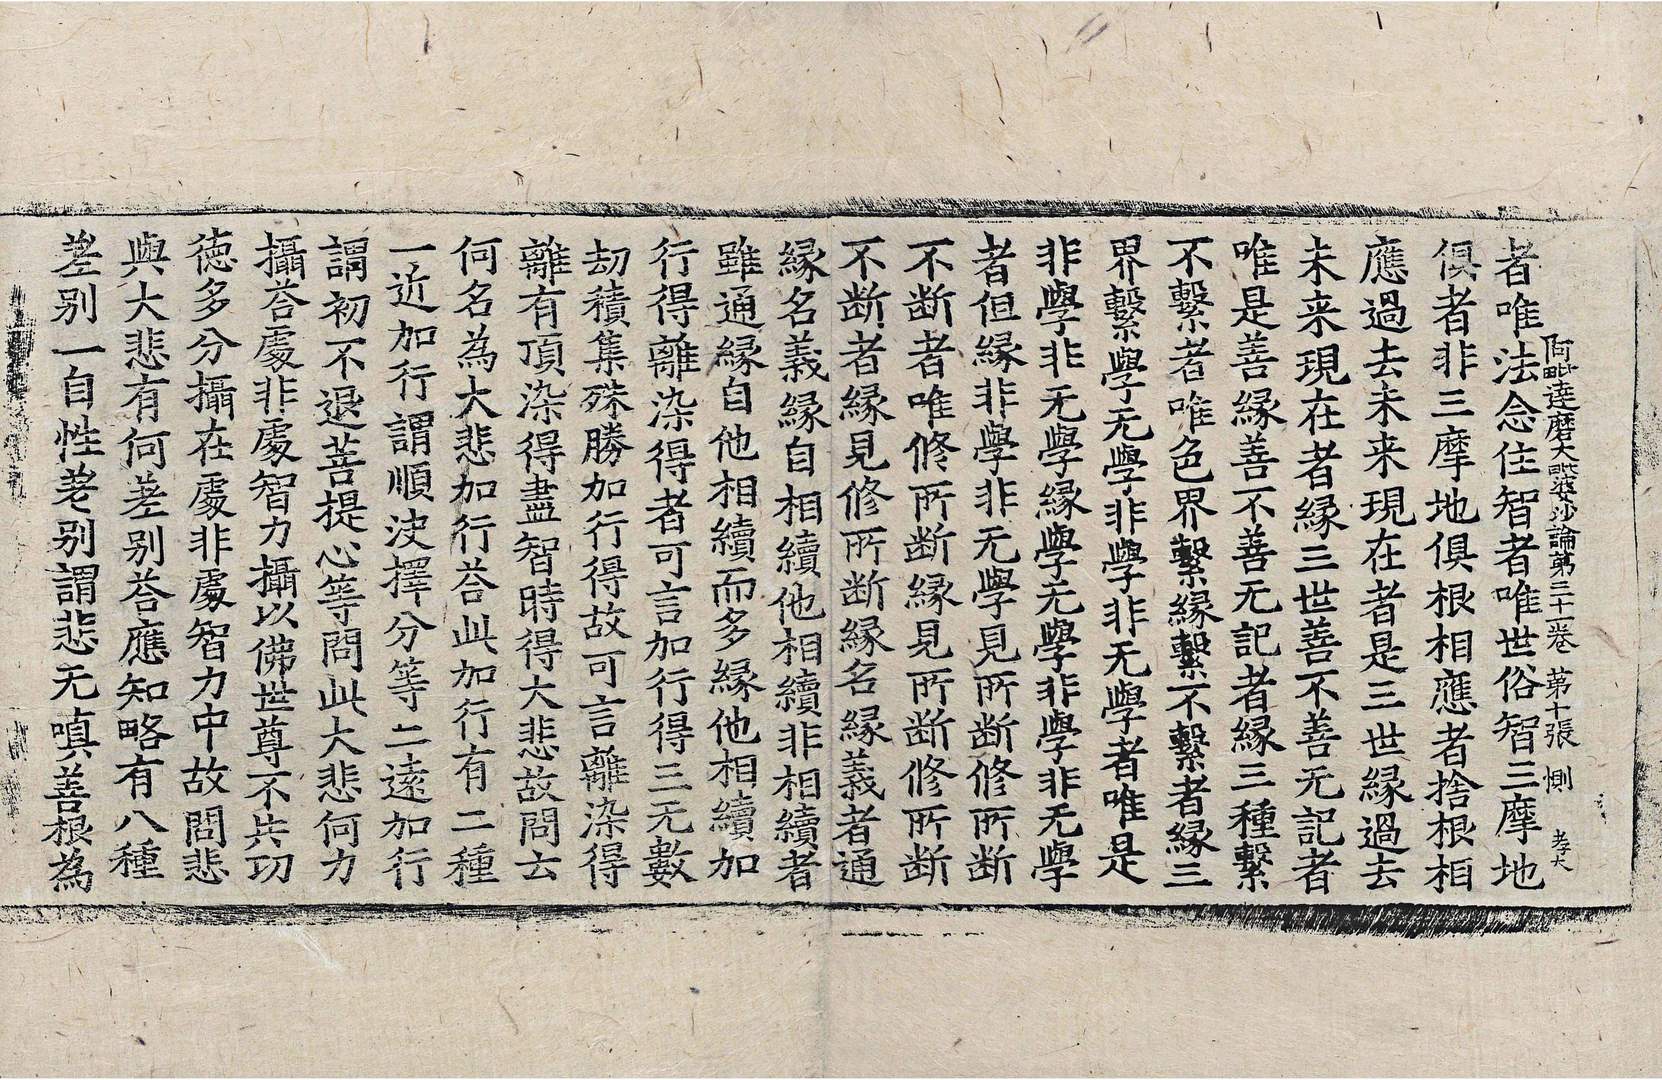 阿毗達磨大毗婆沙論第三十一卷 第十張 惻
者唯法念住智者唯世俗智三摩地
俱者非三摩地俱根相應者捨根相
應過去未来現在者是三世緣過去
未来現在者緣三世善不善无記者
唯是善緣善不善无記者緣三種繫
不繫者唯色界繫緣繫不繫者緣三
界繫學无學非學非无學者唯是
非學非无學緣學无學非學非无學
者但緣非學非无學見所断修所断
不断者唯修所断緣見所断修所断
不断者緣見修所断緣名緣義者通
緣名義緣自相續他相續非相續者
雖通緣自他相續而多緣他相續加
行得離染得者可言加行得三无數
劫積集殊勝加行得故可言離染得
離有頂染得盡智時得大悲故問云
何名為大悲加行荅此加行有二種
一近加行謂順决擇分等二遠加行
謂初不退菩提心等問此大悲何力
攝荅處非處智力攝以佛世尊不共功
德多分攝在處非處智力中故問悲
與大悲有何差别荅應知略有八種
差别一自性差别謂悲无嗔善根為